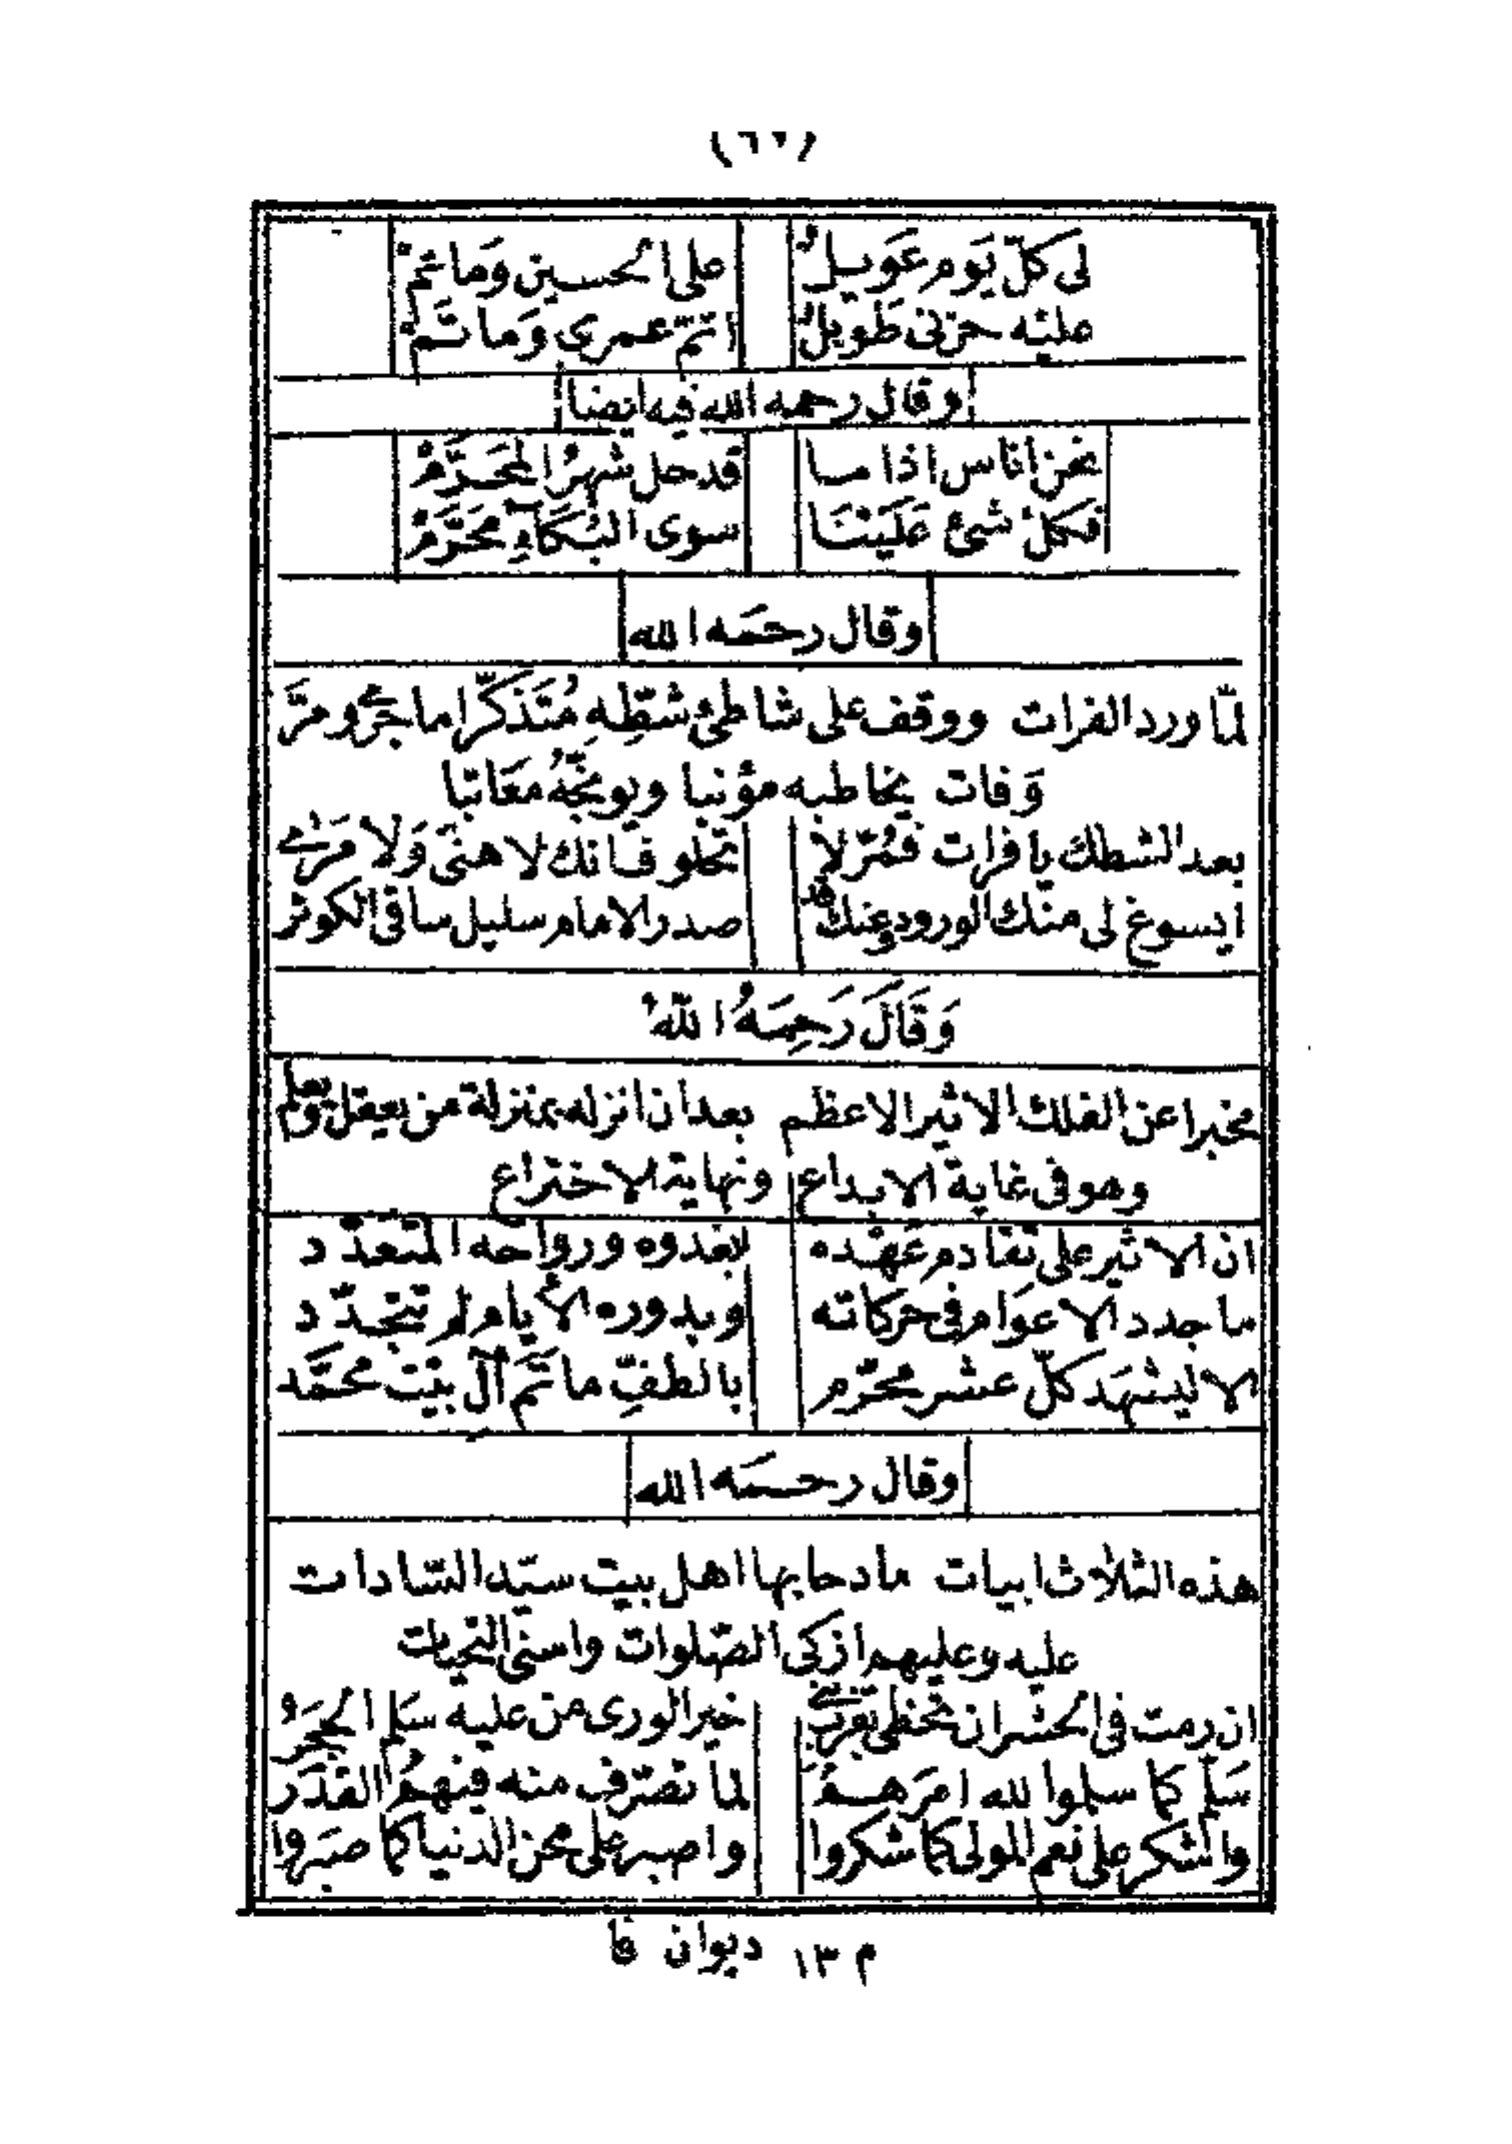 لى كلّ يَوم عَويلٌ على الحسين وَماتمْ
عليه حزنى طَويلٌ اتمّ عمرى وَما تَمْ
وقال رحمه الله فيه ايضا
نحن اناس اذا ما قد حل شهرُ المحَرَّمْ
فكلّ شئ عَلَيْنَا سوى البُكَآءِ محَرَّمْ
وقال رحمَه الله
لمّا ورد الفرات ووقف على شاطئ شطِّهِ مُتَذكِّرا ما جرى ومرَّ
وَفات يخاطبه مؤنبا ويوبخّهُ مَعَاتبا
بعد الشطك يا فرات فمُرّ لا تحلو فانك لا هنى وَلا مَرى
ايسوغ لى منك الورود وعنك قد صدر الامام سليل ساقى الكوثر
وَقَالَ رَحِمَهُ اللهُ
مخبرا عن الفلك الاثير الاعظم بعد ان انزله بمنزلة من يعقل ويعلم
وهو فى غاية الابداع ونهاية الاختراع
ان الاثير على تقادم عَهْده بغدوه ورواحه المتعدّد
ما جدد الاعوام فى حركاته وبدوره الأيام لم تتجدّد
الا ليشهَد كلّ عشر محرّم بالطفِّ ماتَم آل بيْت محمَّد
وقال رحمَه الله
هذه الثلاث ابيات مادحا بها اهل بيت سيّد السّادات
عليه وعليهم ازكى الصّلوات واسنى التحيات
ان رمت فى الحشر ان تحظى بقرب خير الورى من عليه سَلم الحجَرُ
سَلّم كما سلموا لله امرَهمُ لما تصّرف منه فيهمُ القدَر
والشكر على نعم المولى كما شكروا واصبر على محن الدنيا كما صبَروا
م ١٣ ديوان فا